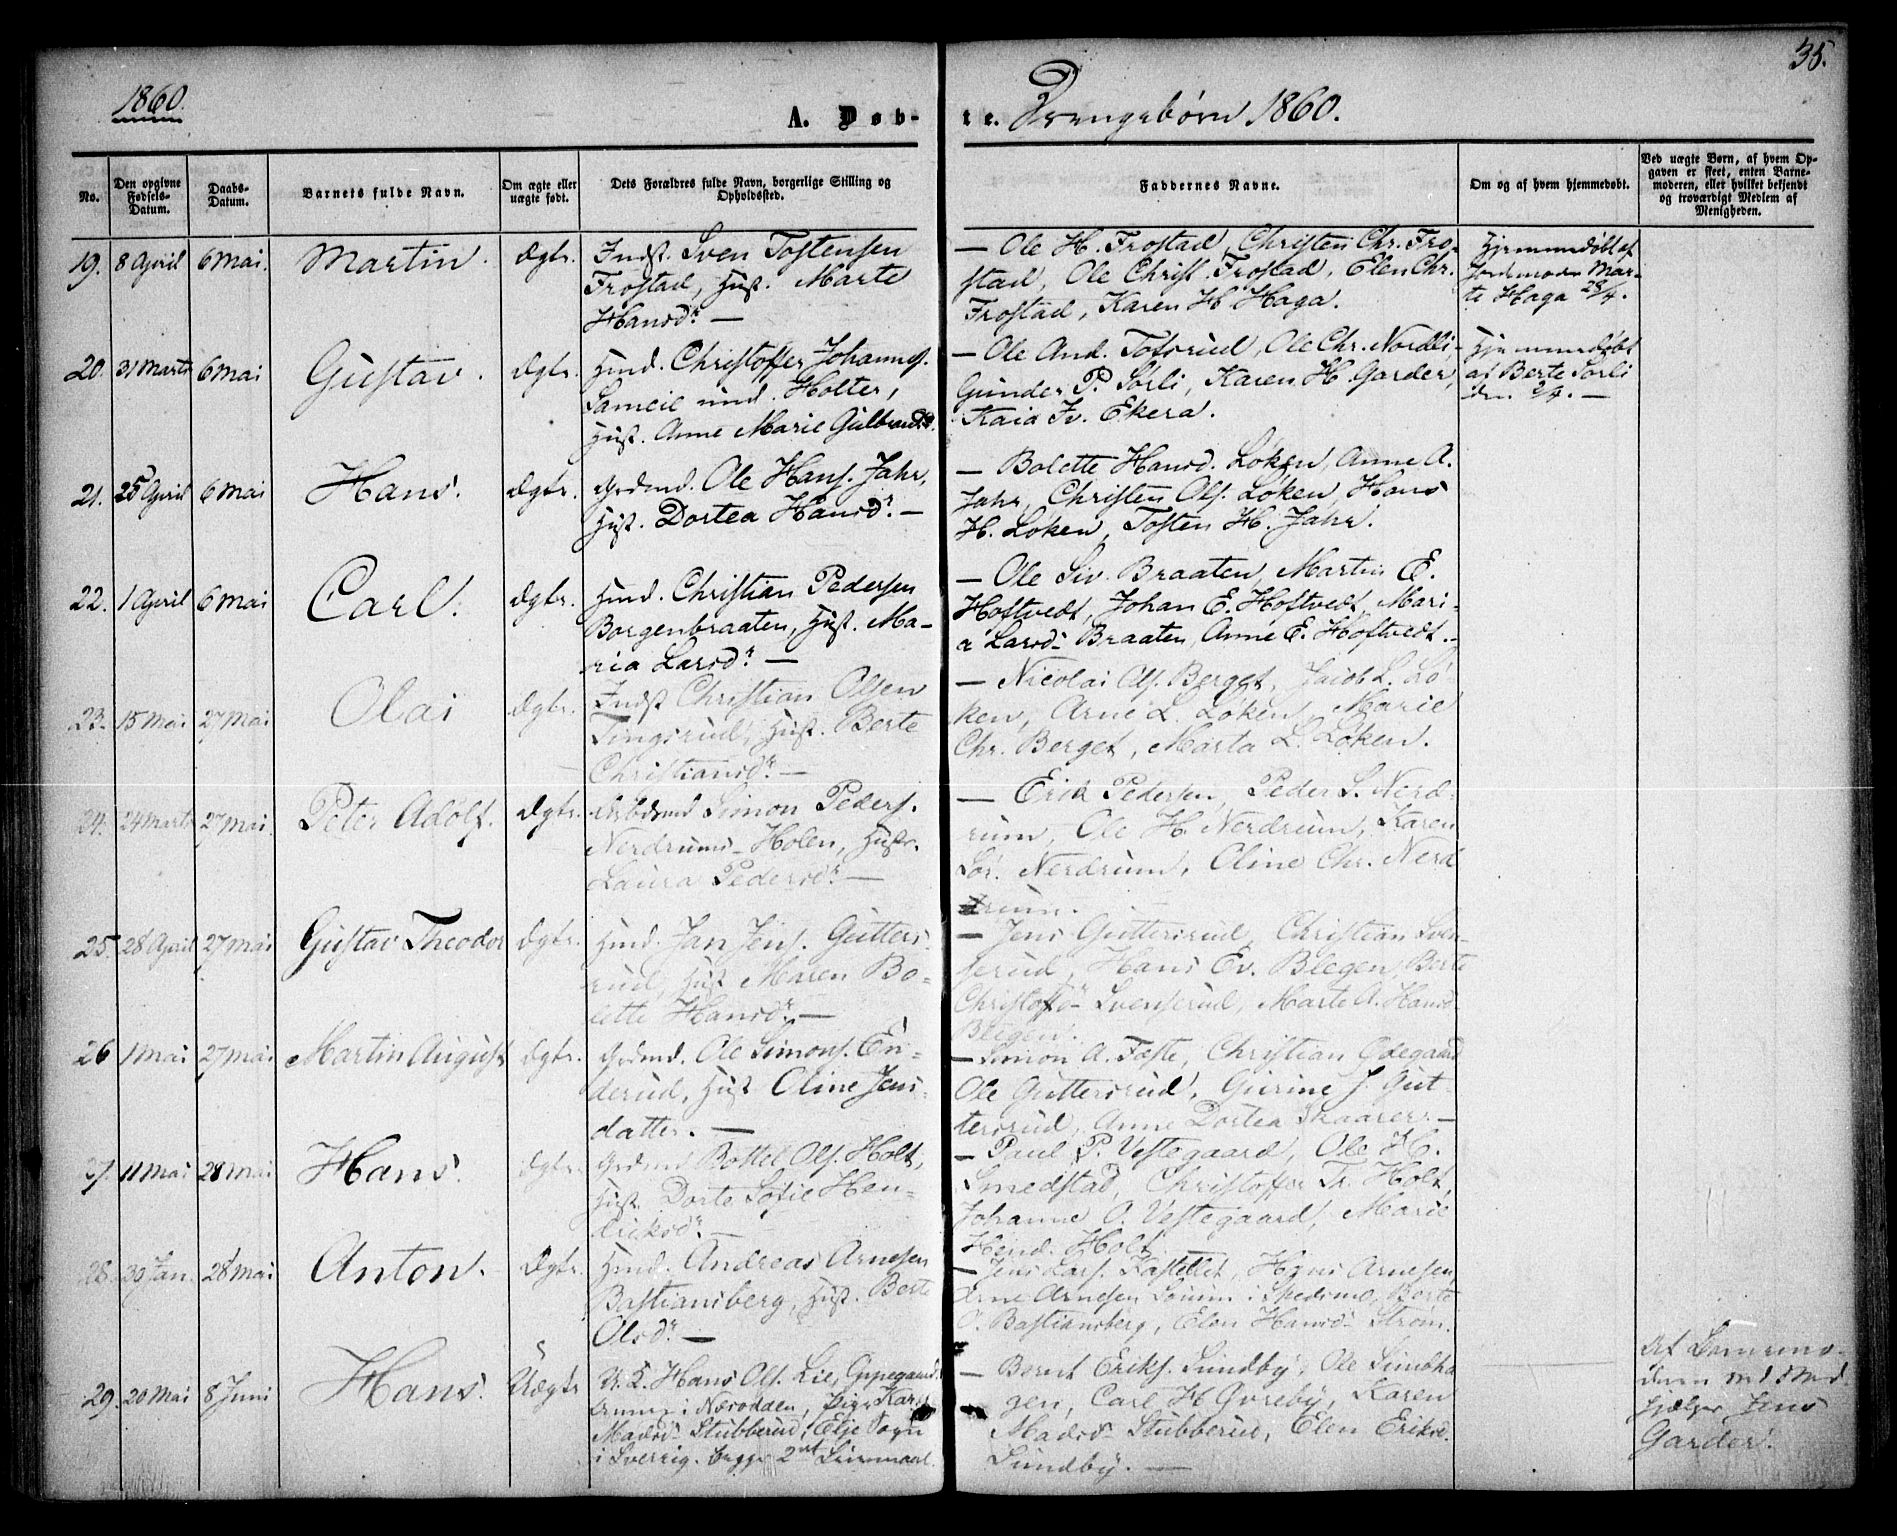 35.
1860.
A. Døb-
te. Drengebørn 1860.
No.
Den opgivne Fødsels-Datum.
Daabs-Datum.
Barnets fulde Navn.
Om ægte eller uægte født.
Dets Forældres fulde Navn, borgerlige Stilling og Opholdssted.
Faddernes Navne.
Om og af hvem hjemmedøbt.
Ved uægte Børn, af hvem Opgaven er skeet, enten Barnemoderen, eller hvilket bekjendt og troværdigt Medlem af Menigheden.
19. 8 April 6 Mai. Martin. Ægte.
Indst. Sven Tostensen
Frostad, Hust. Marte
Hansdr. —
— Ole H. Frostad, Christen Chr. Fro-
stad, Ole Christ. Frostad, Elen Chr.
Frostad, Karen H. Haga.
Hjemmedøbt af
Jordmoder Mar-
te Haga 28/4.
20. 31 Marts 6 Mai Gustav. Ægte.
Hmd. Christoffer Johanness.
Sameie und. Holter,
Hust. Anne Marie Gulbrandsd.
— Ole And. Totsrud, Ole Chr. Nordli,
Gunder P. Sørli, Karen H. Garder,
Kaia Fr. Ekera.
Hjemmedøbt
af Berte Sørli
den 2/4. —
21. 25 April 6 Mai Hans. Ægte.
Grdmd. Ole Hans. Jahr,
Hust. Dortea Hansdr. —
— Bolette Hansd. Løken, Anne A.
Jahr, Christen Ols. Løken, Hans
H. Løken, Tosten H. Jahr.
22. 1 April 6 Mai Carl. Ægte.
Hmd. Christian Pedersen
Borgenbraaten, Hust. Ma-
ria Larsdr. —
— Ole Siv. Braaten, Martin E.
Hoftvedt, Johan E. Hoftvedt, Mari-
a Larsd. Braaten, Anne E. Hoftvedt. —
23. 15 Mai 27 Mai Olai Ægte.
Indst Christian Olsen
Tingsrud, Hust. Berte
Christiansdr. —
— Nicolai Ols. Berget, Jacob L. Lø-
ken, Arne L. Løken, Marie
Chr. Berget, Marta L. Løken.
24. 24 Marts 27 Mai. Peter Adolf. Ægte.
Arbdsmd Simon Peders.
Nerdrums-Holen, Hustr.
Laura Pedersdr. —
— Erik Pedersen, Peder S. Nerd-
rum, Ole H. Nerdrum, Karen
Sør. Nerdrum, Oline Chr. Nerd
rum.
25. 28 April 27 Mai Gustav Theodor Ægte.
Hmd. Jan Jens. Gutters-
rud, Hust Maren Bo-
lette Hansdr. —
— Jens Guttersrud, Christian Sven-
serud, Hans Ev. Blegen, Berte
Christofd. Svenserud, Marte A. Hansd
Blegen.
26 1 Mai 27 Mai Martin August Ægte.
Grdmd. Ole Simons. En-
derud, Hust Oline Jens-
datter. —
— Simon A. Faste, Christian Ødegaard
Ole Guttersrud, Gurine J. Gut-
tersrud, Anne Dortea Skaarer. —
27. 11 Mai 28 Mai Hans. Ægte.
Grdmd Bottel Ols. Holt,
Hust. Dorte Sofie Hen-
riksdr. —
— Paul P. Vestegaard, Ole H.
Smedstad, Christoffer Tr. Holt,
Johanne O. Vestegaard, Marie
Hend. Holt
28. 30 Jan. 28 Mai Anton. Ægte.
Hmd. Andreas Arnesen
Bastiansberg, Hust. Berte
Olsdr. —
— Jens Lars. Kastellet, Hans Arnesen,
Arne Arnesen i Spedsmo, Berte
O. Bastiansberg, Elen Hansd. Strøm.
29. 20 Mai 8 Juni Hans. Uægte
Hans Ols. Lie,
i Næsodden, Pige Kari
Madsd. Stubberud, Sogn
i Sverrig. begge 2det Leiermaal.
— Bernt Eriks. Sundby, Ole Sundha-
gen, Carl H. Huseby, Karen
Madsd. Stubberud, Elen Eriksd.
Sundby. —
Af Barnemo-
deren ved Med-
hjælper Jens
Garder.